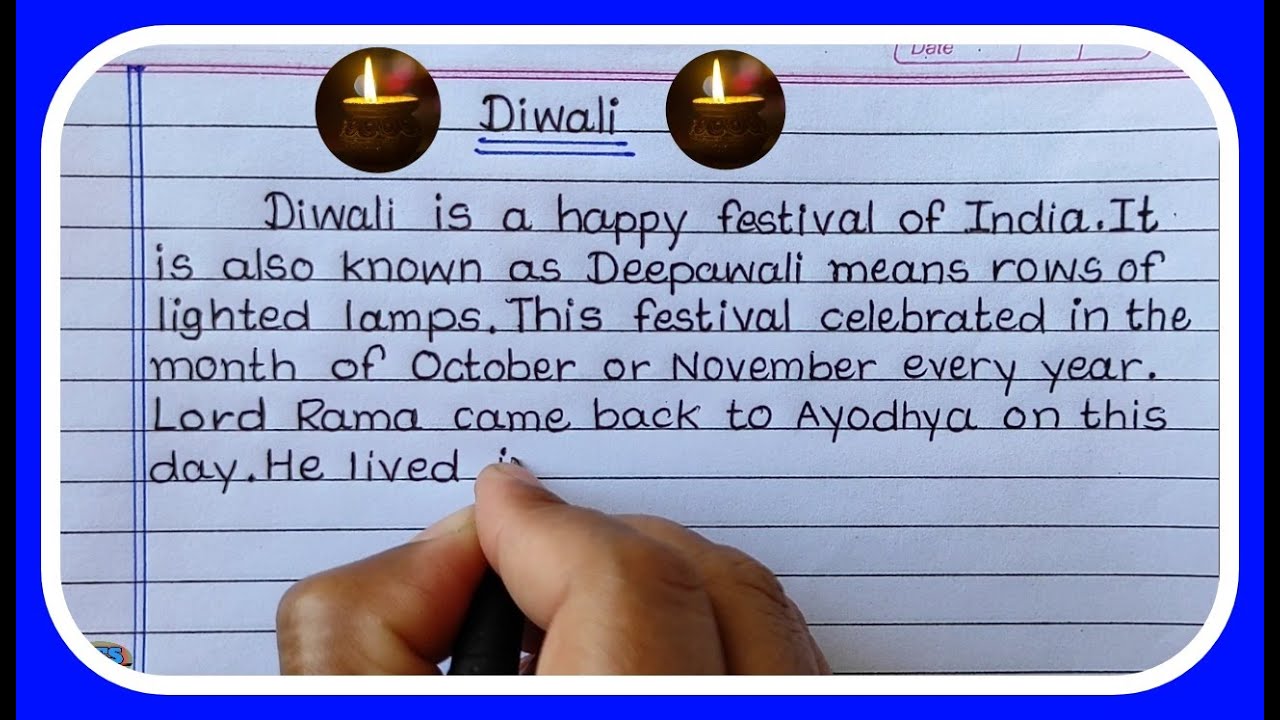 Date
Diwali
Diwali is a happy festival of India. It
is also known as Deepawali means rows of
lighted lamps. This festival celebrated in the
month of October or November every year.
Lord Rama came back to Ayodhya on this
day. He lived